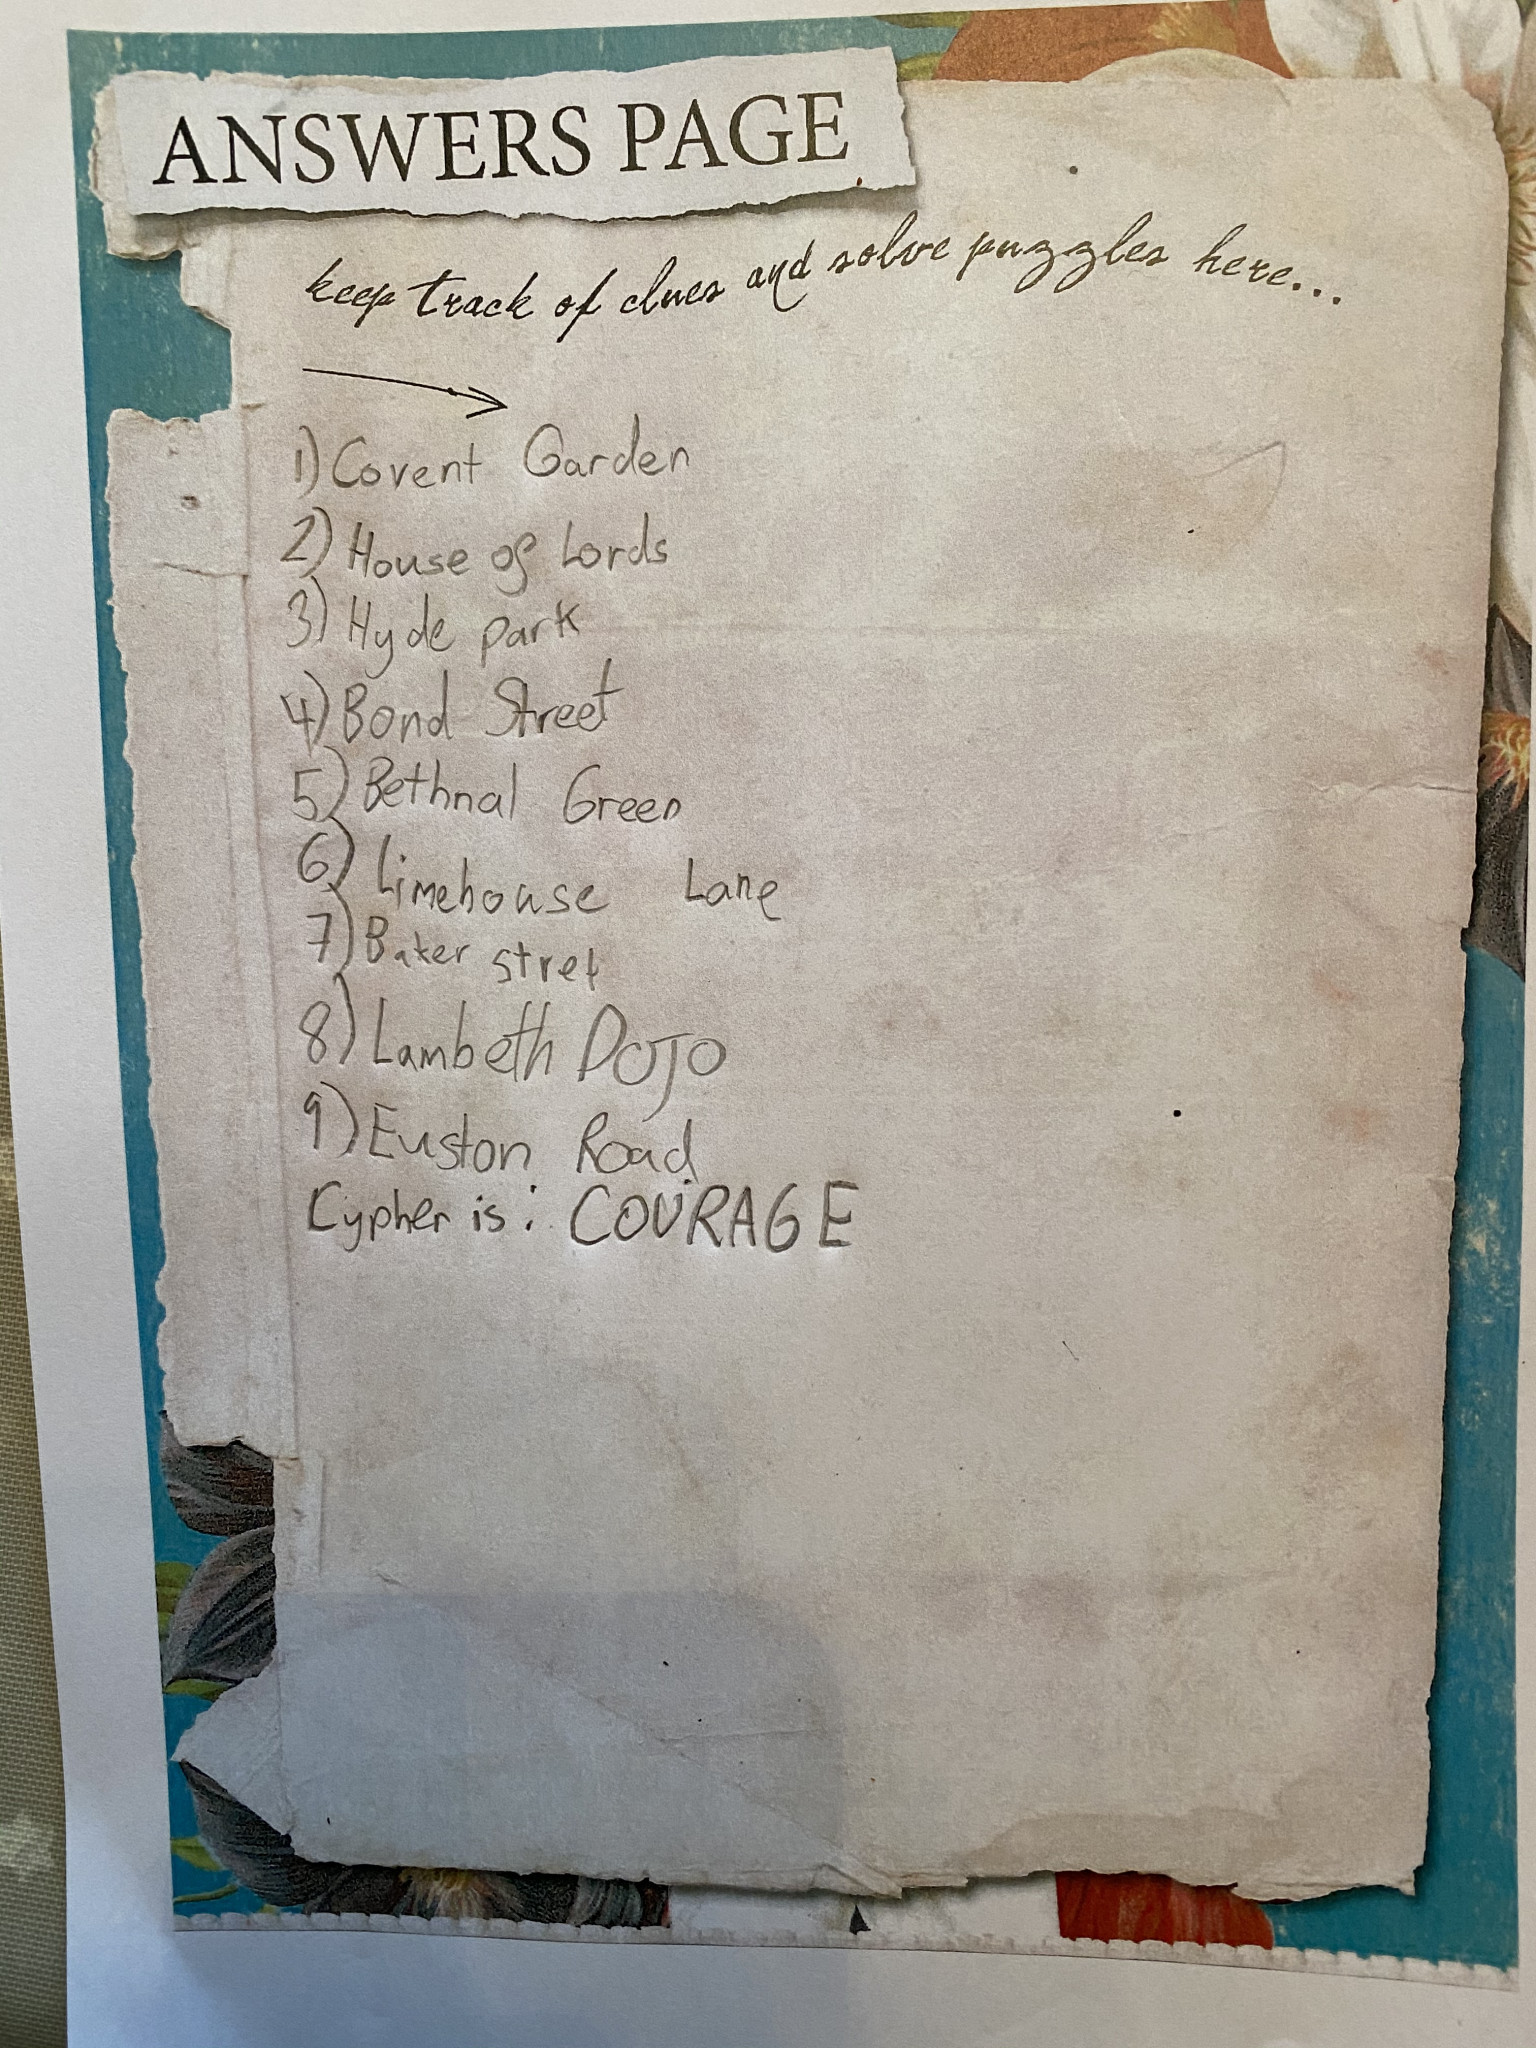 ANSWERS PAGE
keep track of clues and solve puzzles here...
1) Covent Garden
2) House of Lords
3) Hyde park
4) Bond Street
5) Bethnal Green
6) Limehouse Lane
7) Baker stret
8) Lambeth DOJO
9) Euston Road
Cypher is: COURAGE